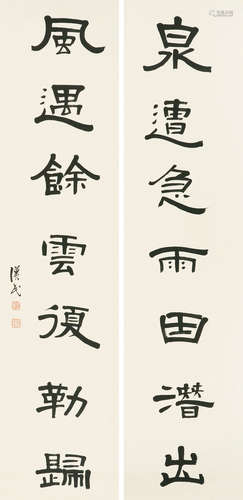 泉遭急雨因潛出
風遇餘雲復勒歸
漢民